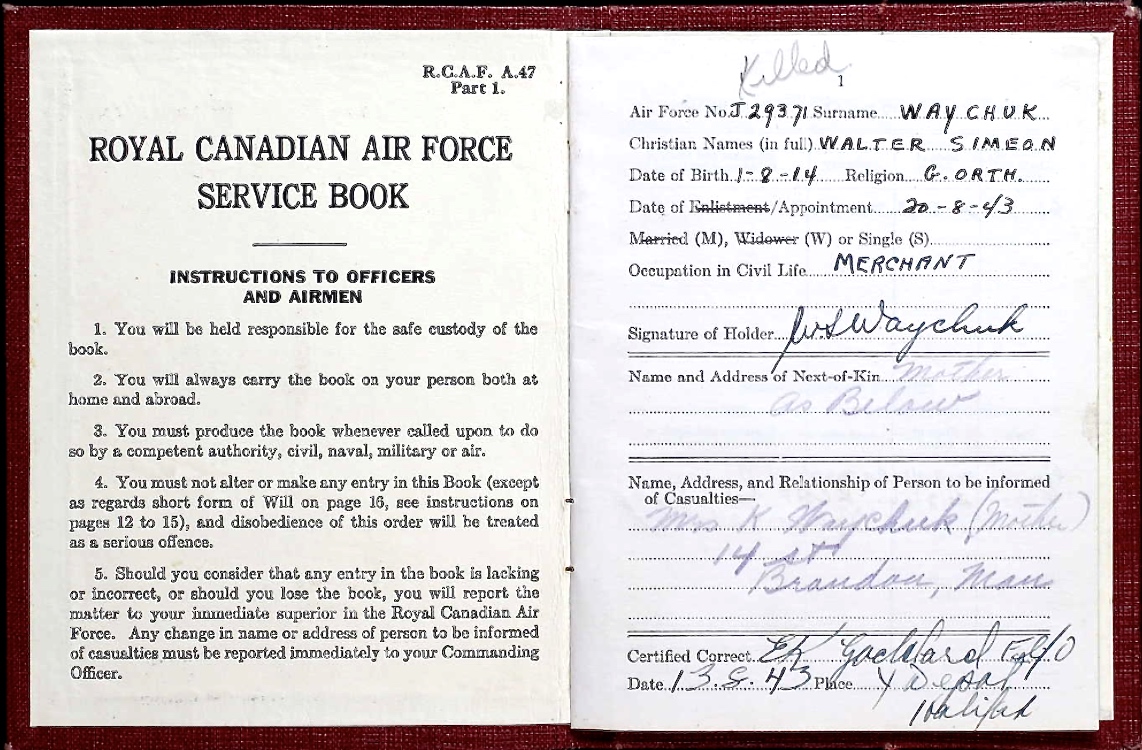 R.C.A.F. A.47
Part 1.
ROYAL CANADIAN AIR FORCE
SERVICE BOOK
INSTRUCTIONS TO OFFICERS
AND AIRMEN
1. You will be held responsible for the safe custody of the
book.
2. You will always carry the book on your person both at
home and abroad.
3. You must produce the book whenever called upon to do
so by a competent authority, civil, naval, military or air.
4. You must not alter or make any entry in this Book (except
as regards short form of Will on page 16, see instructions on
pages 12 to 15), and disobedience of this order will be treated
as a serious offence.
5. Should you consider that any entry in the book is lacking
or incorrect, or should you lose the book, you will report the
matter to your immediate superior in the Royal Canadian Air
Force. Any change in name or address of person to be informed
of casualties must be reported immediately to your Commanding
Officer.
Killed
1
Air Force No. J29371 Surname WAYCHUK
Christian Names (in full) WALTER SIMEON
Date of Birth 1-8-14 Religion G. ORTH.
Date of Enlistment/Appointment 20-8-43
Married (M), Widower (W) or Single (S)
Occupation in Civil Life MERCHANT
Signature of Holder WSWaychuk
Name and Address of Next-of-Kin Mother
as Below
Name, Address, and Relationship of Person to be informed
of Casualties—
Mrs K Waychuk (Mother)
14 st
Brandon, Man
Certified Correct F/O
Date 13.8.43 Place Y Depot
Halifax